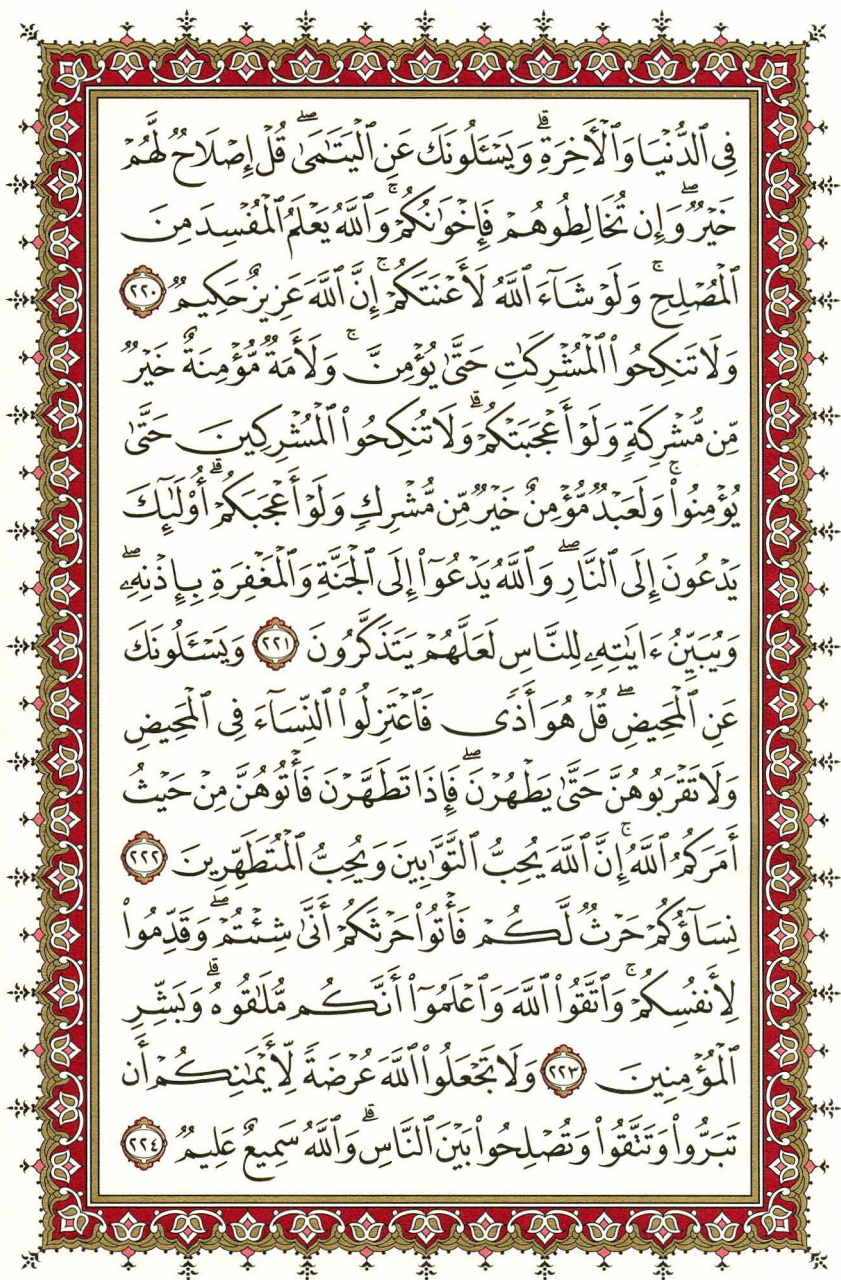 فِي ٱلدُّنۡيَا وَٱلۡأٓخِرَةِۗ وَيَسۡـَٔلُونَكَ عَنِ ٱلۡيَتَٰمَىٰۖ قُلۡ إِصۡلَاحٞ لَّهُمۡ
خَيۡرٞۖ وَإِن تُخَالِطُوهُمۡ فَإِخۡوَٰنُكُمۡۚ وَٱللَّهُ يَعۡلَمُ ٱلۡمُفۡسِدَ مِنَ
ٱلۡمُصۡلِحِۚ وَلَوۡ شَآءَ ٱللَّهُ لَأَعۡنَتَكُمۡۚ إِنَّ ٱللَّهَ عَزِيزٌ حَكِيمٞ ٢٢٠
وَلَا تَنكِحُواْ ٱلۡمُشۡرِكَٰتِ حَتَّىٰ يُؤۡمِنَّۚ وَلَأَمَةٞ مُّؤۡمِنَةٌ خَيۡرٞ
مِّن مُّشۡرِكَةٖ وَلَوۡ أَعۡجَبَتۡكُمۡۗ وَلَا تُنكِحُواْ ٱلۡمُشۡرِكِينَ حَتَّىٰ
يُؤۡمِنُواْۚ وَلَعَبۡدٞ مُّؤۡمِنٌ خَيۡرٞ مِّن مُّشۡرِكٖ وَلَوۡ أَعۡجَبَكُمۡۗ أُوْلَٰٓئِكَ
يَدۡعُونَ إِلَى ٱلنَّارِۖ وَٱللَّهُ يَدۡعُوٓاْ إِلَى ٱلۡجَنَّةِ وَٱلۡمَغۡفِرَةِ بِإِذۡنِهِۦۖ
وَيُبَيِّنُ ءَايَٰتِهِۦ لِلنَّاسِ لَعَلَّهُمۡ يَتَذَكَّرُونَ ٢٢١ وَيَسۡـَٔلُونَكَ
عَنِ ٱلۡمَحِيضِۖ قُلۡ هُوَ أَذٗى فَٱعۡتَزِلُواْ ٱلنِّسَآءَ فِي ٱلۡمَحِيضِ
وَلَا تَقۡرَبُوهُنَّ حَتَّىٰ يَطۡهُرۡنَۖ فَإِذَا تَطَهَّرۡنَ فَأۡتُوهُنَّ مِنۡ حَيۡثُ
أَمَرَكُمُ ٱللَّهُۚ إِنَّ ٱللَّهَ يُحِبُّ ٱلتَّوَّٰبِينَ وَيُحِبُّ ٱلۡمُتَطَهِّرِينَ ٢٢٢
نِسَآؤُكُمۡ حَرۡثٞ لَّكُمۡ فَأۡتُواْ حَرۡثَكُمۡ أَنَّىٰ شِئۡتُمۡۖ وَقَدِّمُواْ
لِأَنفُسِكُمۡۚ وَٱتَّقُواْ ٱللَّهَ وَٱعۡلَمُوٓاْ أَنَّكُم مُّلَٰقُوهُۗ وَبَشِّرِ
ٱلۡمُؤۡمِنِينَ ٢٢٣ وَلَا تَجۡعَلُواْ ٱللَّهَ عُرۡضَةٗ لِّأَيۡمَٰنِكُمۡ أَن
تَبَرُّواْ وَتَتَّقُواْ وَتُصۡلِحُواْ بَيۡنَ ٱلنَّاسِۗ وَٱللَّهُ سَمِيعٌ عَلِيمٞ ٢٢٤